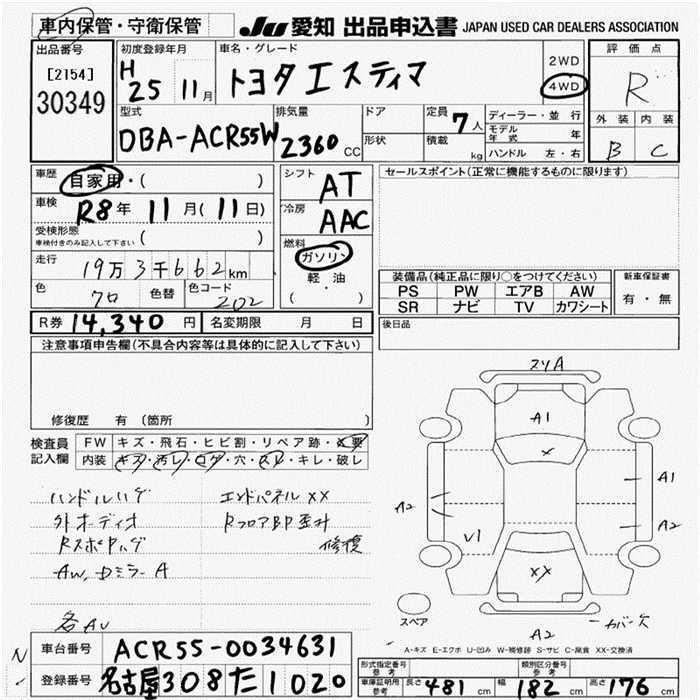 車内保管・守衛保管
JU 愛知 出品申込書 JAPAN USED CAR DEALERS ASSOCIATION
出品番号
[2154]
30349
初度登録年月
H 25 11月
車名・グレード
トヨタ エスティマ
2WD
4WD
評価点
R
外装 内装
B C
型式
DBA-ACR55W
排気量
2360 CC
ドア
形状
定員 7人
積載 kg
ディーラー・並行
モデル年式 年
ハンドル 左・右
車歴 自家用・( )
車検 R8年 11月(11日)
受検形態
車検付きのみ記入して下さい ( )
走行
19万3千662km
色 クロ 色替 色コード 202
シフト AT
冷房 AAC
燃料
ガソリン
軽・油
( ・ )
セールスポイント(正常に機能するものに限ります)
装備品(純正品に限り○をつけてください)
PS PW エアB AW
SR ナビ TV カワシート
新車保証書
有・無
R券 14,340円 名変期限 月 日
後日品
注意事項申告欄(不具合内容等は具体的に記入して下さい)
修復歴 有 (箇所 )
検査員記入欄
FW キズ・飛石・ヒビ割・リペア跡・✕要
内装 キズ・汚レ・コゲ・穴・スレ・キレ・破レ
ハンドルハゲ
外オーディオ
RスポPハゲ
AW, Dミラー A
各AU
エンドパネル XX
RフロアBP歪汁
修複
スリA
A1
A1
A2
A2
V1
XX
A2
カバー欠
スペア
A-キズ E-エクボ U-凹み W-補修跡 S-サビ C-腐食 XX-交換済
N
車台番号 ACR55-0034631
登録番号 名古屋 308 た 1020
形式指定番号 参考
類別区分番号 参考
車庫証明用 参考 長さ 481 cm 幅 182 cm 高さ 176 cm